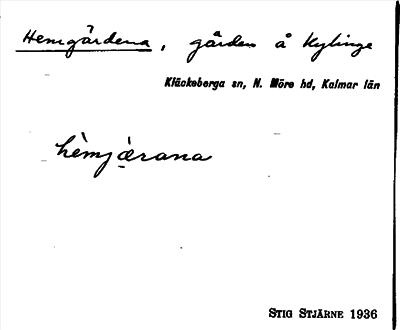 Hemgårdena, gården å Kylinge
Kläckeberga sn, N. Möre hd, Kalmar län
hèmjæ̀rana
STIG STJÄRNE 1936